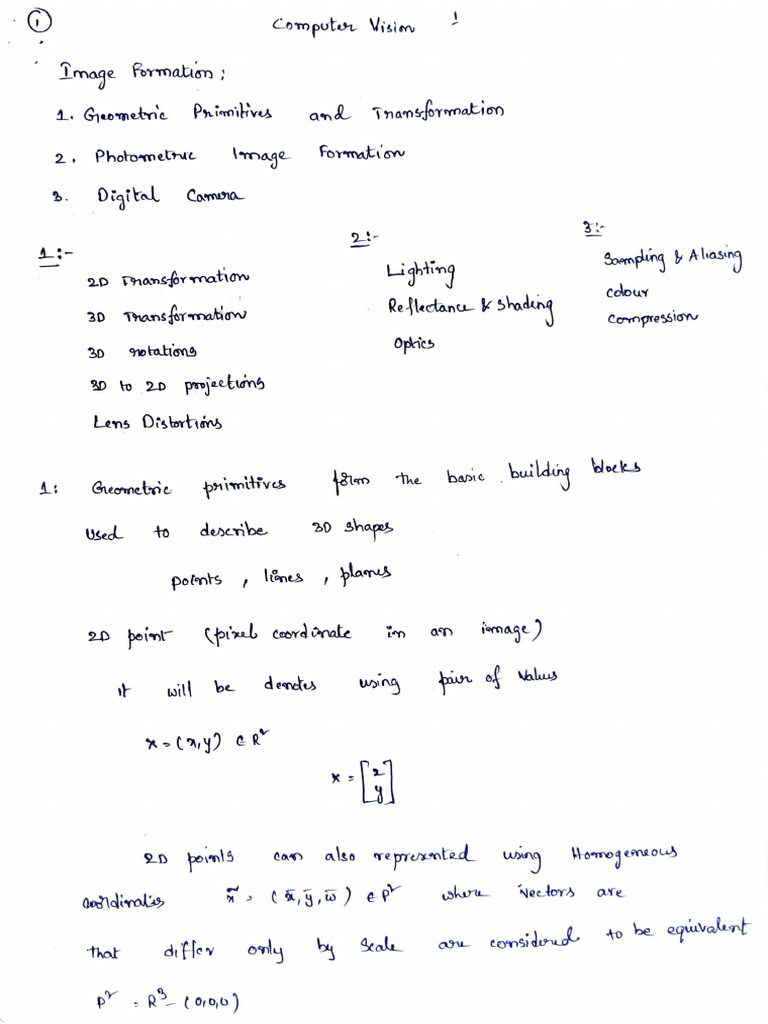 ①
Computer Vision !
Image Formation :
1. Geometric Primitives and Transformation
2. Photometric Image Formation
3. Digital Camera
1:-
2D Transformation
3D Transformation
3D rotations
3D to 2D projections
Lens Distortions
2:-
Lighting
Reflectance & shading
Optics
3:-
Sampling & Aliasing
colour
compression
1: Geometric primitives form the basic building blocks
used to describe 3D shapes
points , lines , planes
2D point (pixel coordinate in an image)
it will be denotes using pair of values
x = (x,y) ∈ R²
x = [x
y]
2D points can also represented using Homogeneous
coordinates x̃ = (x̄, ȳ, w̄) ∈ P² where vectors are
that differ only by scale are considered to be equivalent
P² = R³ - (0,0,0)